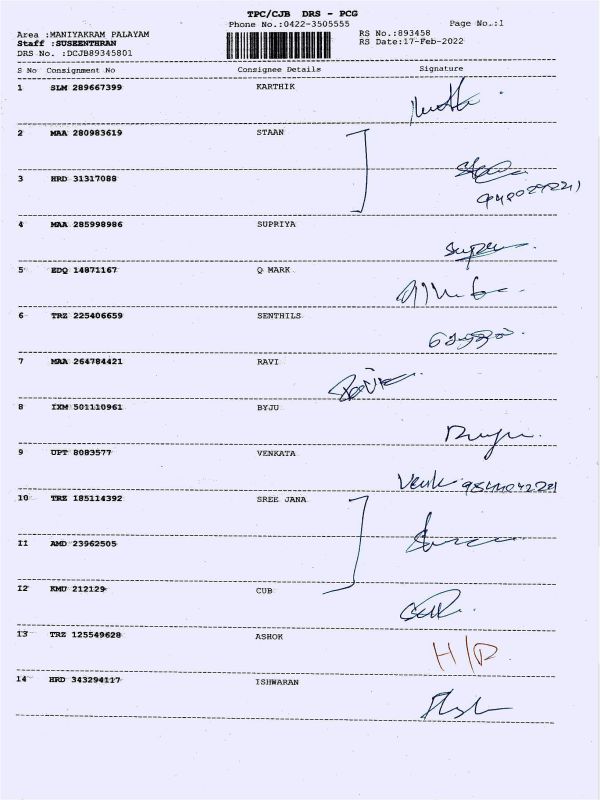 TPC/CJB DRS - PCG
Phone No.:0422-3505555 Page No.:1
Area :MANIYAKRAM PALAYAM RS No.:893458
Staff :SUSEENTHRAN RS Date:17-Feb-2022
DRS No. :DCJB89345801
S No Consignment No Consignee Details Signature
1 SLM 289667399 KARTHIK
2 MAA 280983619 STAAN
3 HRD 31317088
4 MAA 285998986 SUPRIYA
5 EDQ 14871167 Q MARK
6 TRZ 225406659 SENTHILS
7 MAA 264784421 RAVI
8 IXM 501110961 BYJU
9 UPT 8083577 VENKATA
10 TRZ 185114392 SREE JANA
11 AMD 23962505
12 KMU 212129 CUB
13 TRZ 125549628 ASHOK
H/R
14 HRD 343294117 ISHWARAN